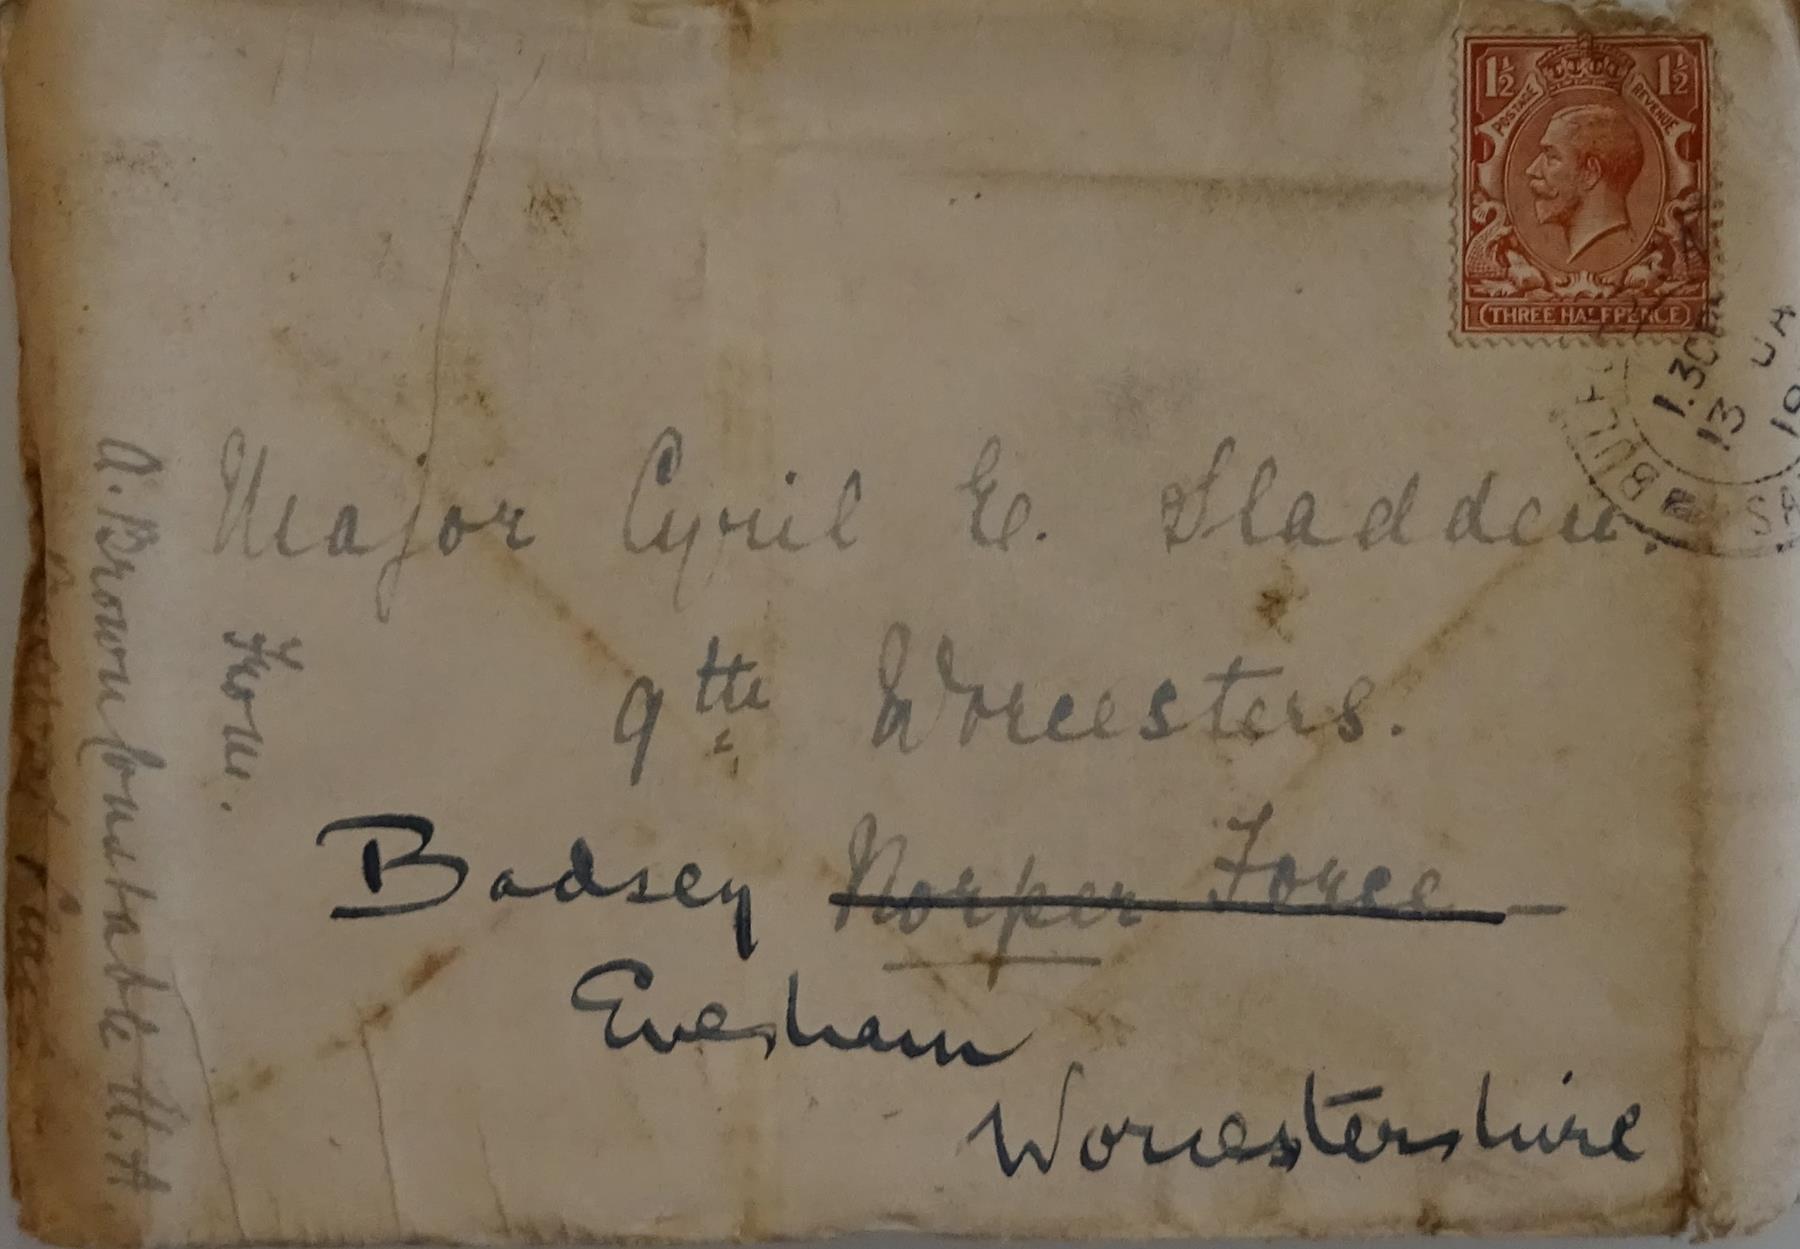 1½ 1½
POSTAGE REVENUE
THREE HALFPENCE
1.30
13 JA
19
BULA
SA
Major Cyril E. Sladden.
9th Worcesters.
Badsey Norper Force
Evesham
Worcestershire
From.
A. Brownconstable H.A